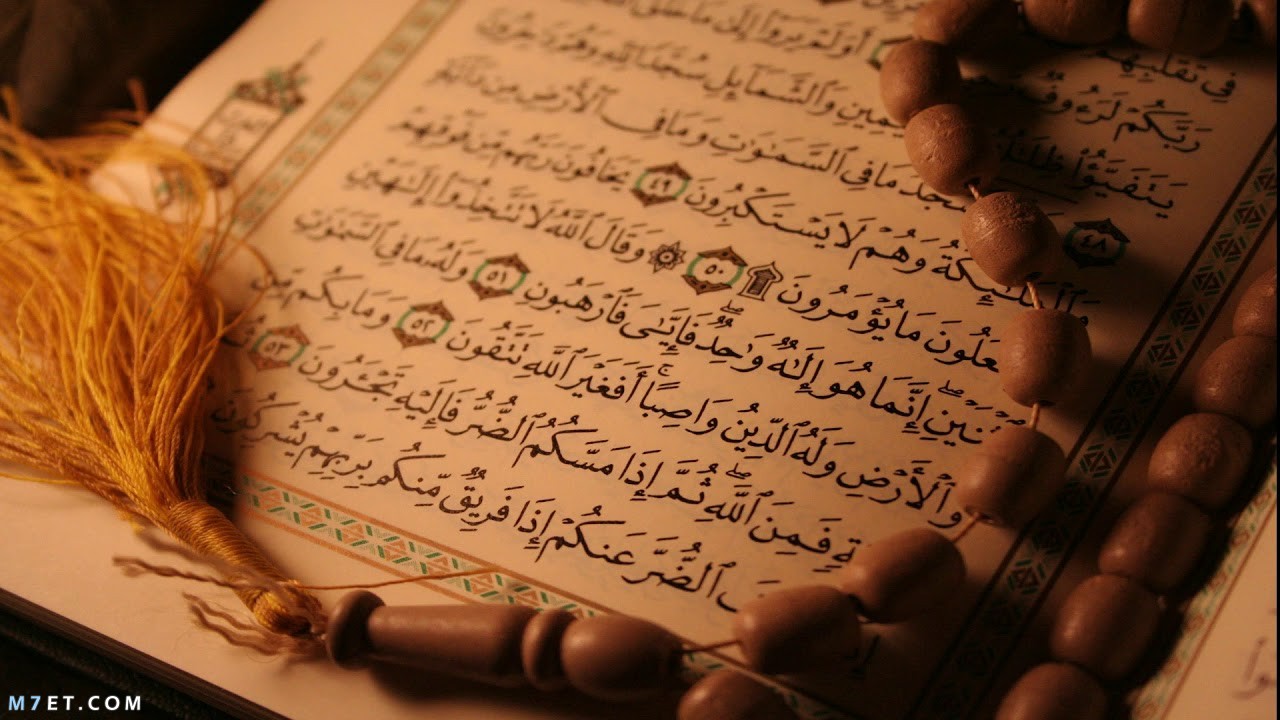 فِي تَقَلُّبِهِمْ
رَبَّكُمْ لَرَءُوفٌ أَوَلَمْ يَرَوْا۟ إِلَىٰ مَا خَلَقَ
يَتَفَيَّؤُا۟ ظِلَـٰلُهُ ٱلْيَمِينِ وَٱلشَّمَآئِلِ سُجَّدًا لِّلَّهِ وَهُمْ دَٰخِرُونَ
٤٨ يَسْجُدُ مَا فِى ٱلسَّمَـٰوَٰتِ وَمَا فِى ٱلْأَرْضِ مِن دَآبَّةٍ
وَٱلْمَلَـٰٓئِكَةُ وَهُمْ لَا يَسْتَكْبِرُونَ ٤٩ يَخَافُونَ رَبَّهُم مِّن فَوْقِهِمْ
يَفْعَلُونَ مَا يُؤْمَرُونَ ۩ ٥٠ ۞ وَقَالَ ٱللَّهُ لَا تَتَّخِذُوٓا۟ إِلَـٰهَيْنِ
ٱثْنَيْنِ ۖ إِنَّمَا هُوَ إِلَـٰهٌ وَٰحِدٌ ۖ فَإِيَّـٰىَ فَٱرْهَبُونِ ٥١ وَلَهُۥ مَا فِى ٱلسَّمَـٰوَٰتِ
وَٱلْأَرْضِ وَلَهُ ٱلدِّينُ وَاصِبًا ۚ أَفَغَيْرَ ٱللَّهِ تَتَّقُونَ ٥٢ وَمَا بِكُم مِّن
ةٍ فَمِنَ ٱللَّهِ ۖ ثُمَّ إِذَا مَسَّكُمُ ٱلضُّرُّ فَإِلَيْهِ تَجْـَٔرُونَ ٥٣ ثُمَّ
ٱلضُّرَّ عَنكُمْ إِذَا فَرِيقٌ مِّنكُم بِرَبِّهِمْ يُشْرِكُونَ
M7ET.COM